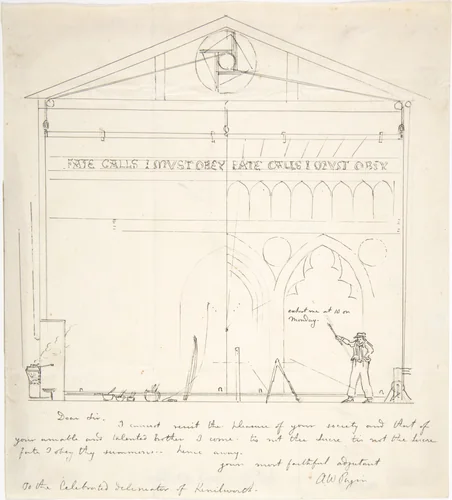 FATE CALLS I MUST OBEY FATE CALLS I MUST OBEY
at 10 on
Monday.
Dear Sir. I cannot resist the pleasure of your society and that of
your amiable and talented brother I come. tis not the lucre tis not the lucre
fate I obey thy summons - hence away.
your most faithful
AW Pugin
To the Celebrated delineator of Kenilworth.